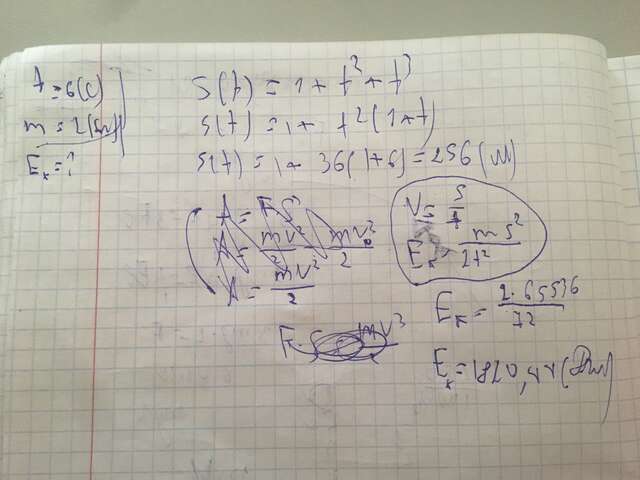 t = 6(c)
m = 2(кг)
Eк = ?
S(t) = 1 + t² + t³
S(t) = 1 + t²(1+t)
S(t) = 1 + 36(1+6) = 256(м)
A = FS
A = mv²/2 - mv₀²/2
A = mv²/2
F · S = mv²
V = S/t
Eк = mS²/2t²
Eк = 2·65536/72
Eк = 1820,44(Дж)